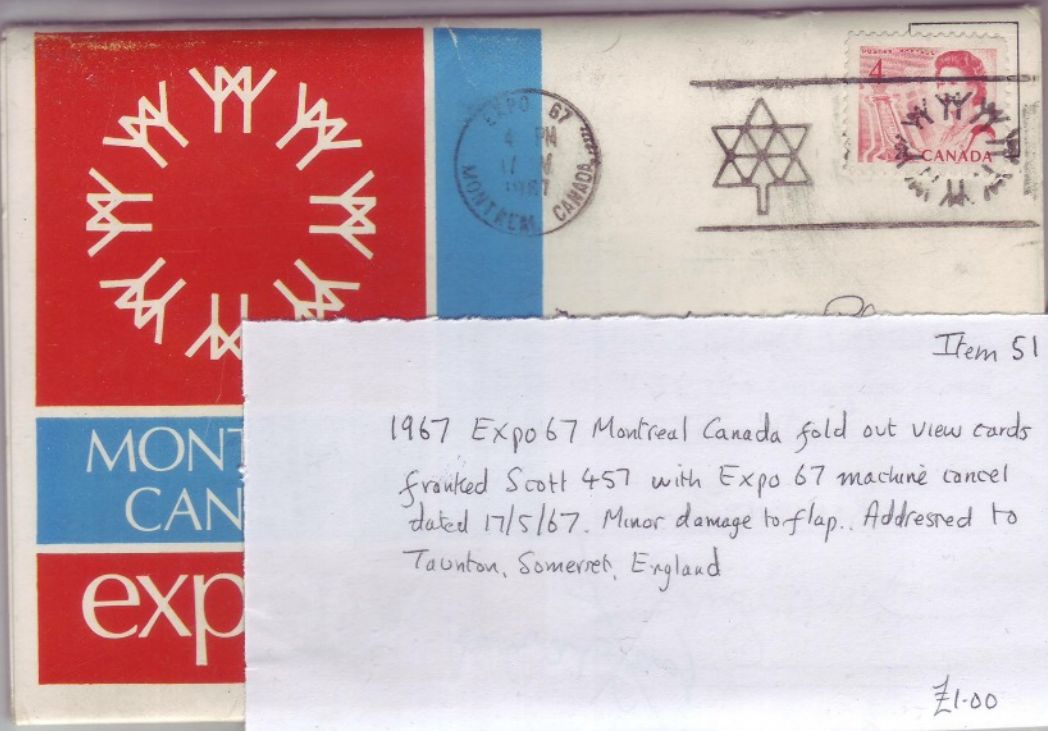 EXPO 67
4 PM
17 V
1967
MONTREAL CANADA
POSTES POSTAGE
4
CANADA
MONT
CAN
exp
Item 51
1967 Expo 67 Montreal Canada fold out view cards
franked Scott 457 with Expo 67 machine cancel
dated 17/5/67. Minor damage to flap.. Addressed to
Taunton, Somerset, England
£1.00